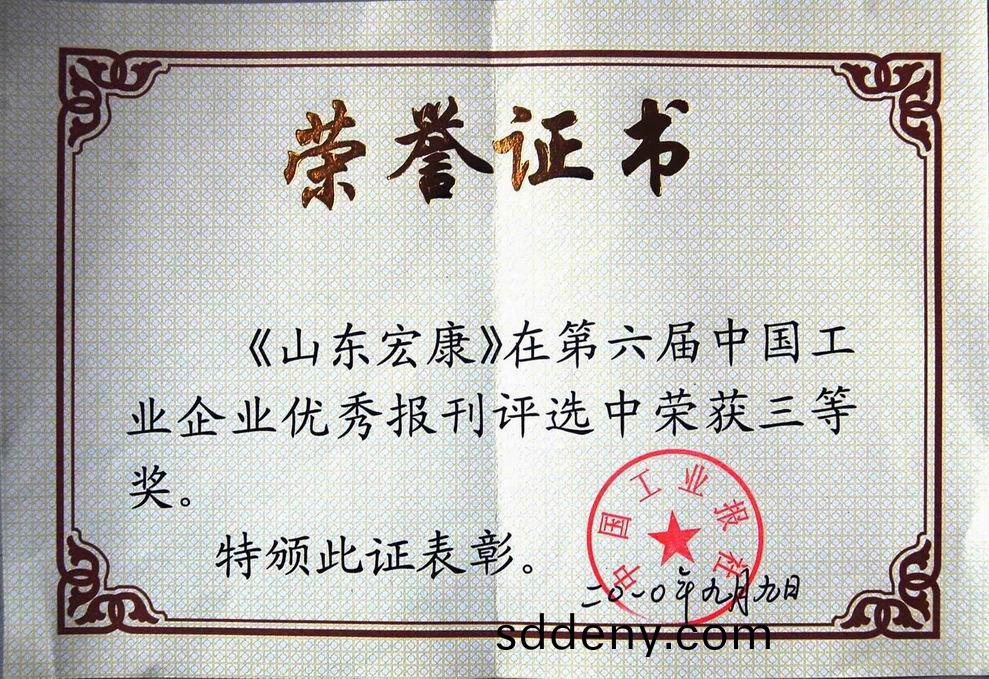 荣誉证书
《山东宏康》在第六届中国工
业企业优秀报刊评选中荣获三等
奖。
特颁此证表彰。
中国工业报社
二〇一〇年九月九日
sddeny.com